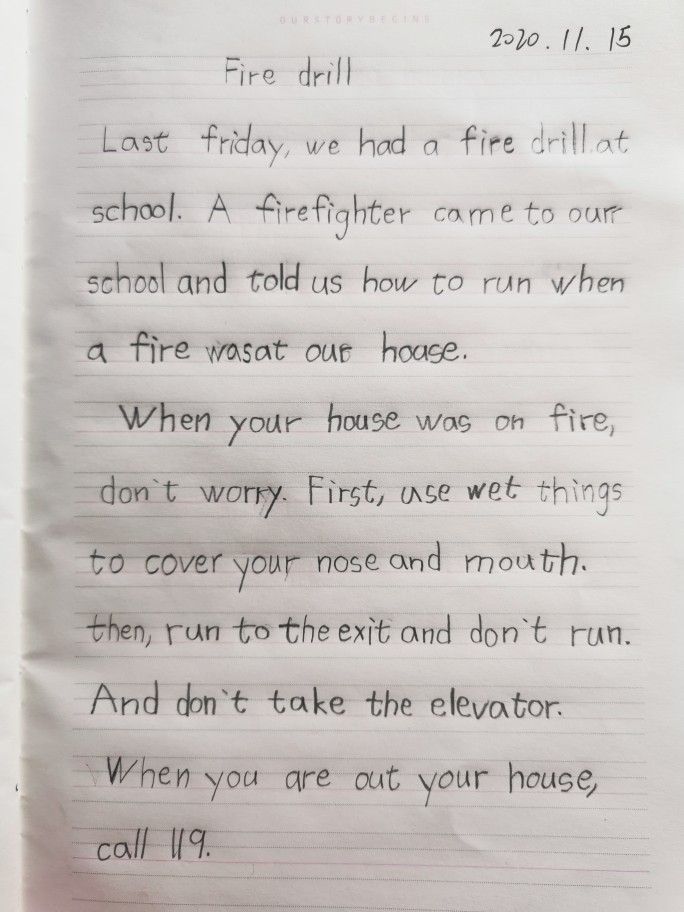 OURSTORYBEGINS
2020.11.15
Fire drill
Last friday, we had a fire drill.at
school. A firefighter came to our
school and told us how to run when
a fire wasat our hoase.
When your house was on fire,
don't worry. First, use wet things
to cover your nose and mouth.
then, run to the exit and don't run.
And don't take the elevator.
When you are out your house,
call 119.